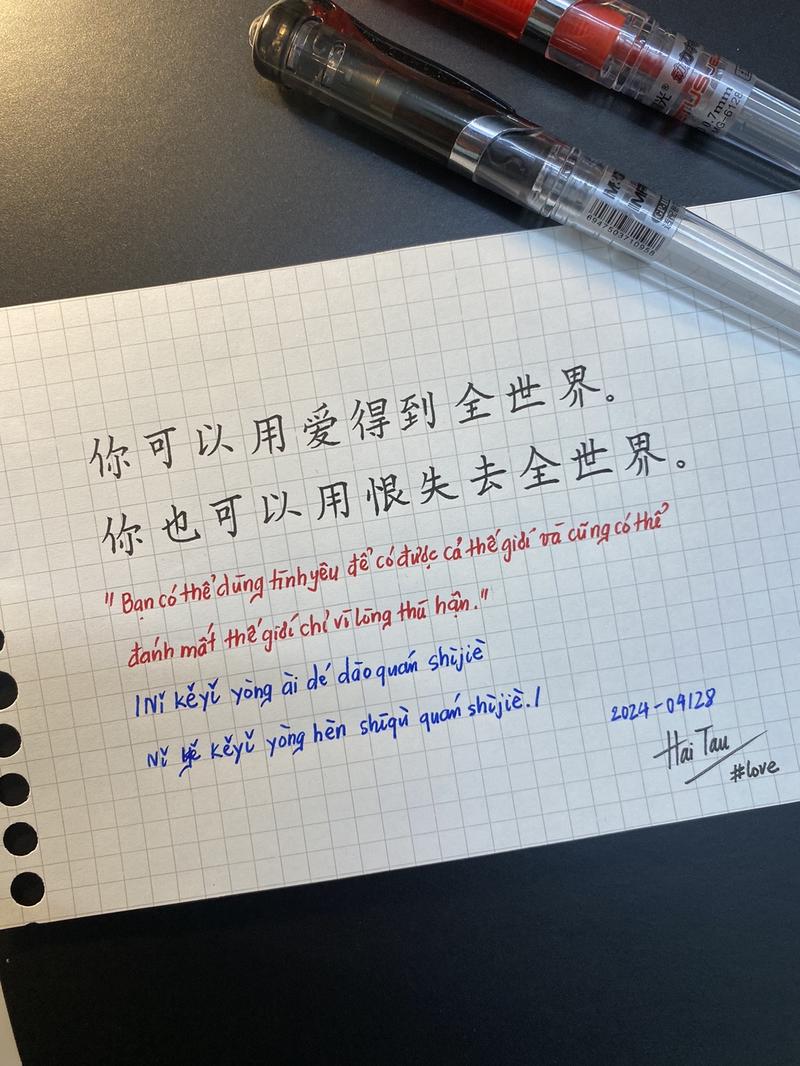 0.7mm
MG-6128
6947503710958
你可以用爱得到全世界。
你也可以用恨失去全世界。
"Bạn có thể dùng tình yêu để có được cả thế giới và cũng có thể
đánh mất thế giới chỉ vì lòng thù hận."
/Nǐ kěyǐ yòng ài dé dāo quán shìjiè
Nǐ yě kěyǐ yòng hèn shīqù quán shìjiè./
2024-04128
Hai Tau
#love